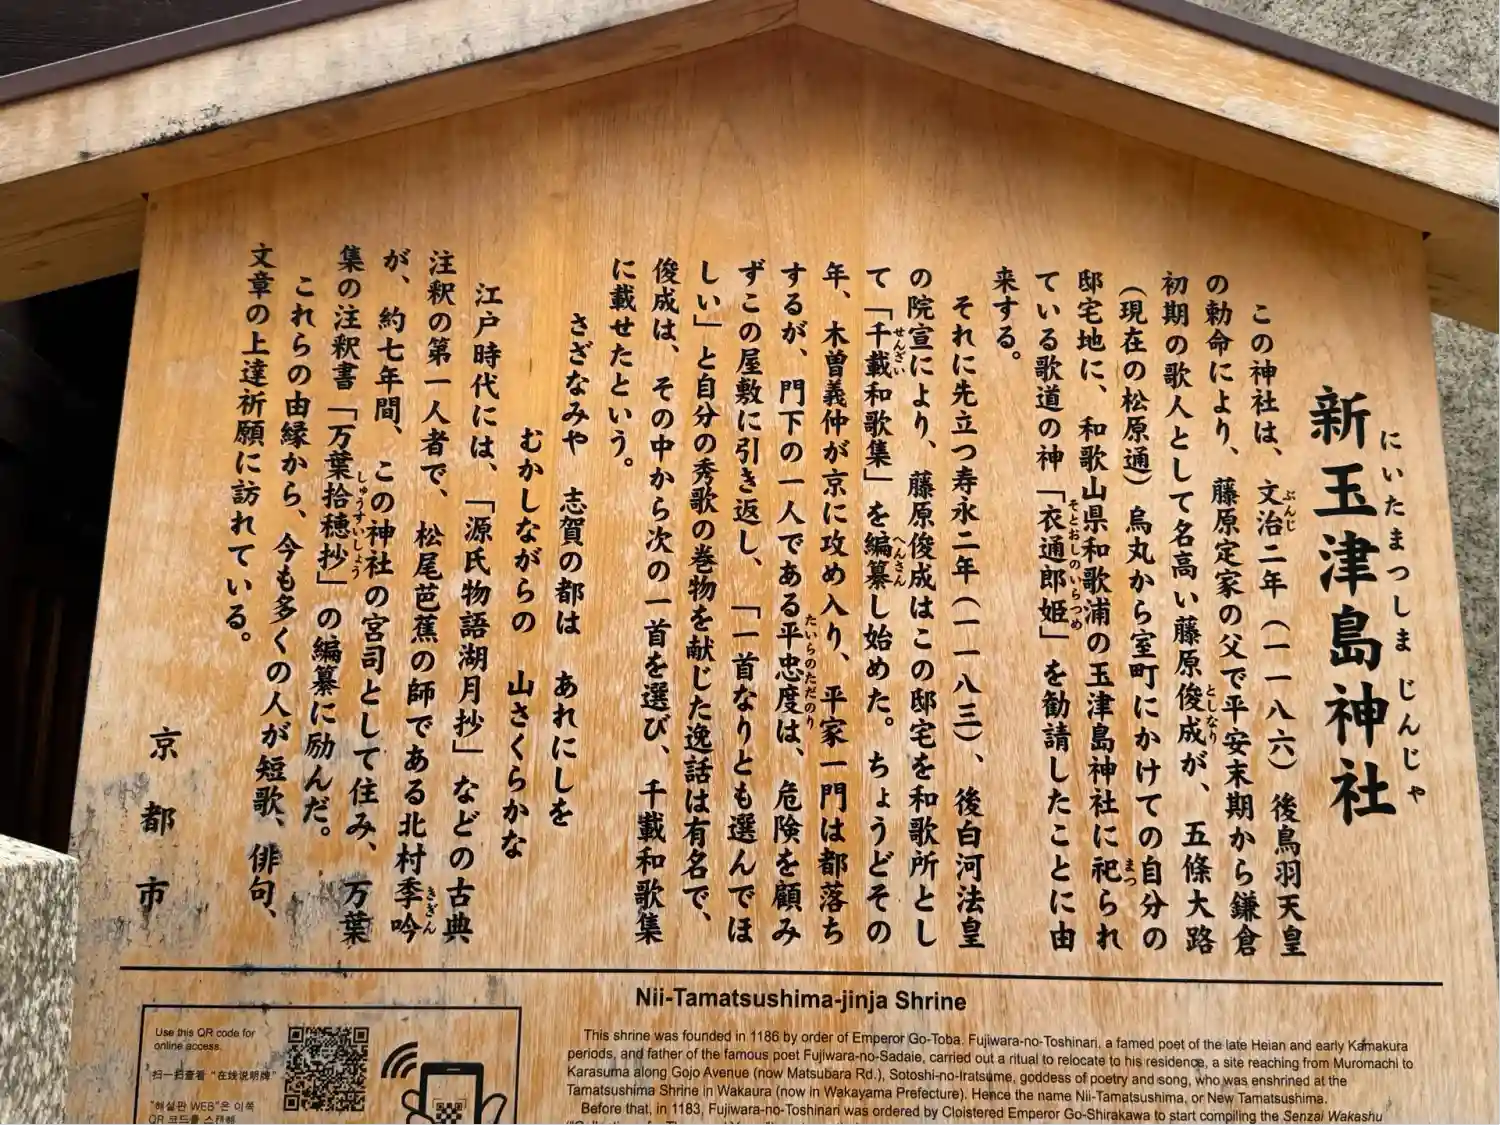 新玉津島神社
にいたまつしまじんじゃ
この神社は、文治二年（一一八六）後鳥羽天皇
ぶんじ
の勅命により、藤原定家の父で平安末期から鎌倉
初期の歌人として名高い藤原俊成が、五條大路
としなり
（現在の松原通）烏丸から室町にかけての自分の
邸宅地に、和歌山県和歌浦の玉津島神社に祀られ
まつ
ている歌道の神「衣通郎姫」を勧請したことに由
そとおしのいらつめ
来する。
それに先立つ寿永二年（一一八三）、後白河法皇
の院宣により、藤原俊成はこの邸宅を和歌所とし
て「千載和歌集」を編纂し始めた。ちょうどその
せんざい
へんさん
年、木曽義仲が京に攻め入り、平家一門は都落ち
するが、門下の一人である平忠度は、危険を顧み
たいらのただのり
ずこの屋敷に引き返し、「一首なりとも選んでほ
しい」と自分の秀歌の巻物を献じた逸話は有名で、
俊成は、その中から次の一首を選び、千載和歌集
に載せたという。
さざなみや　志賀の都は　あれにしを
むかしながらの　山さくらかな
江戸時代には、「源氏物語湖月抄」などの古典
注釈の第一人者で、松尾芭蕉の師である北村季吟
きぎん
が、約七年間、この神社の宮司として住み、万葉
集の注釈書「万葉拾穂抄」の編纂に励んだ。
しゅうすいしょう
これらの由縁から、今も多くの人が短歌、俳句、
文章の上達祈願に訪れている。
京都市
Nii-Tamatsushima-jinja Shrine
This shrine was founded in 1186 by order of Emperor Go-Toba. Fujiwara-no-Toshinari, a famed poet of the late Heian and early Kamakura
periods, and father of the famous poet Fujiwara-no-Sadaie, carried out a ritual to relocate to his residence, a site reaching from Muromachi to
Karasuma along Gojo Avenue (now Matsubara Rd.), Sotoshi-no-Iratsume, goddess of poetry and song, who was enshrined at the
Tamatsushima Shrine in Wakaura (now in Wakayama Prefecture). Hence the name Nii-Tamatsushima, or New Tamatsushima.
Before that, in 1183, Fujiwara-no-Toshinari was ordered by Cloistered Emperor Go-Shirakawa to start compiling the Senzai Wakashu
Use this QR code for
online access.
扫一扫查看“在线说明牌”
"해설판 WEB"은 이쪽
QR 코드를 스캔해